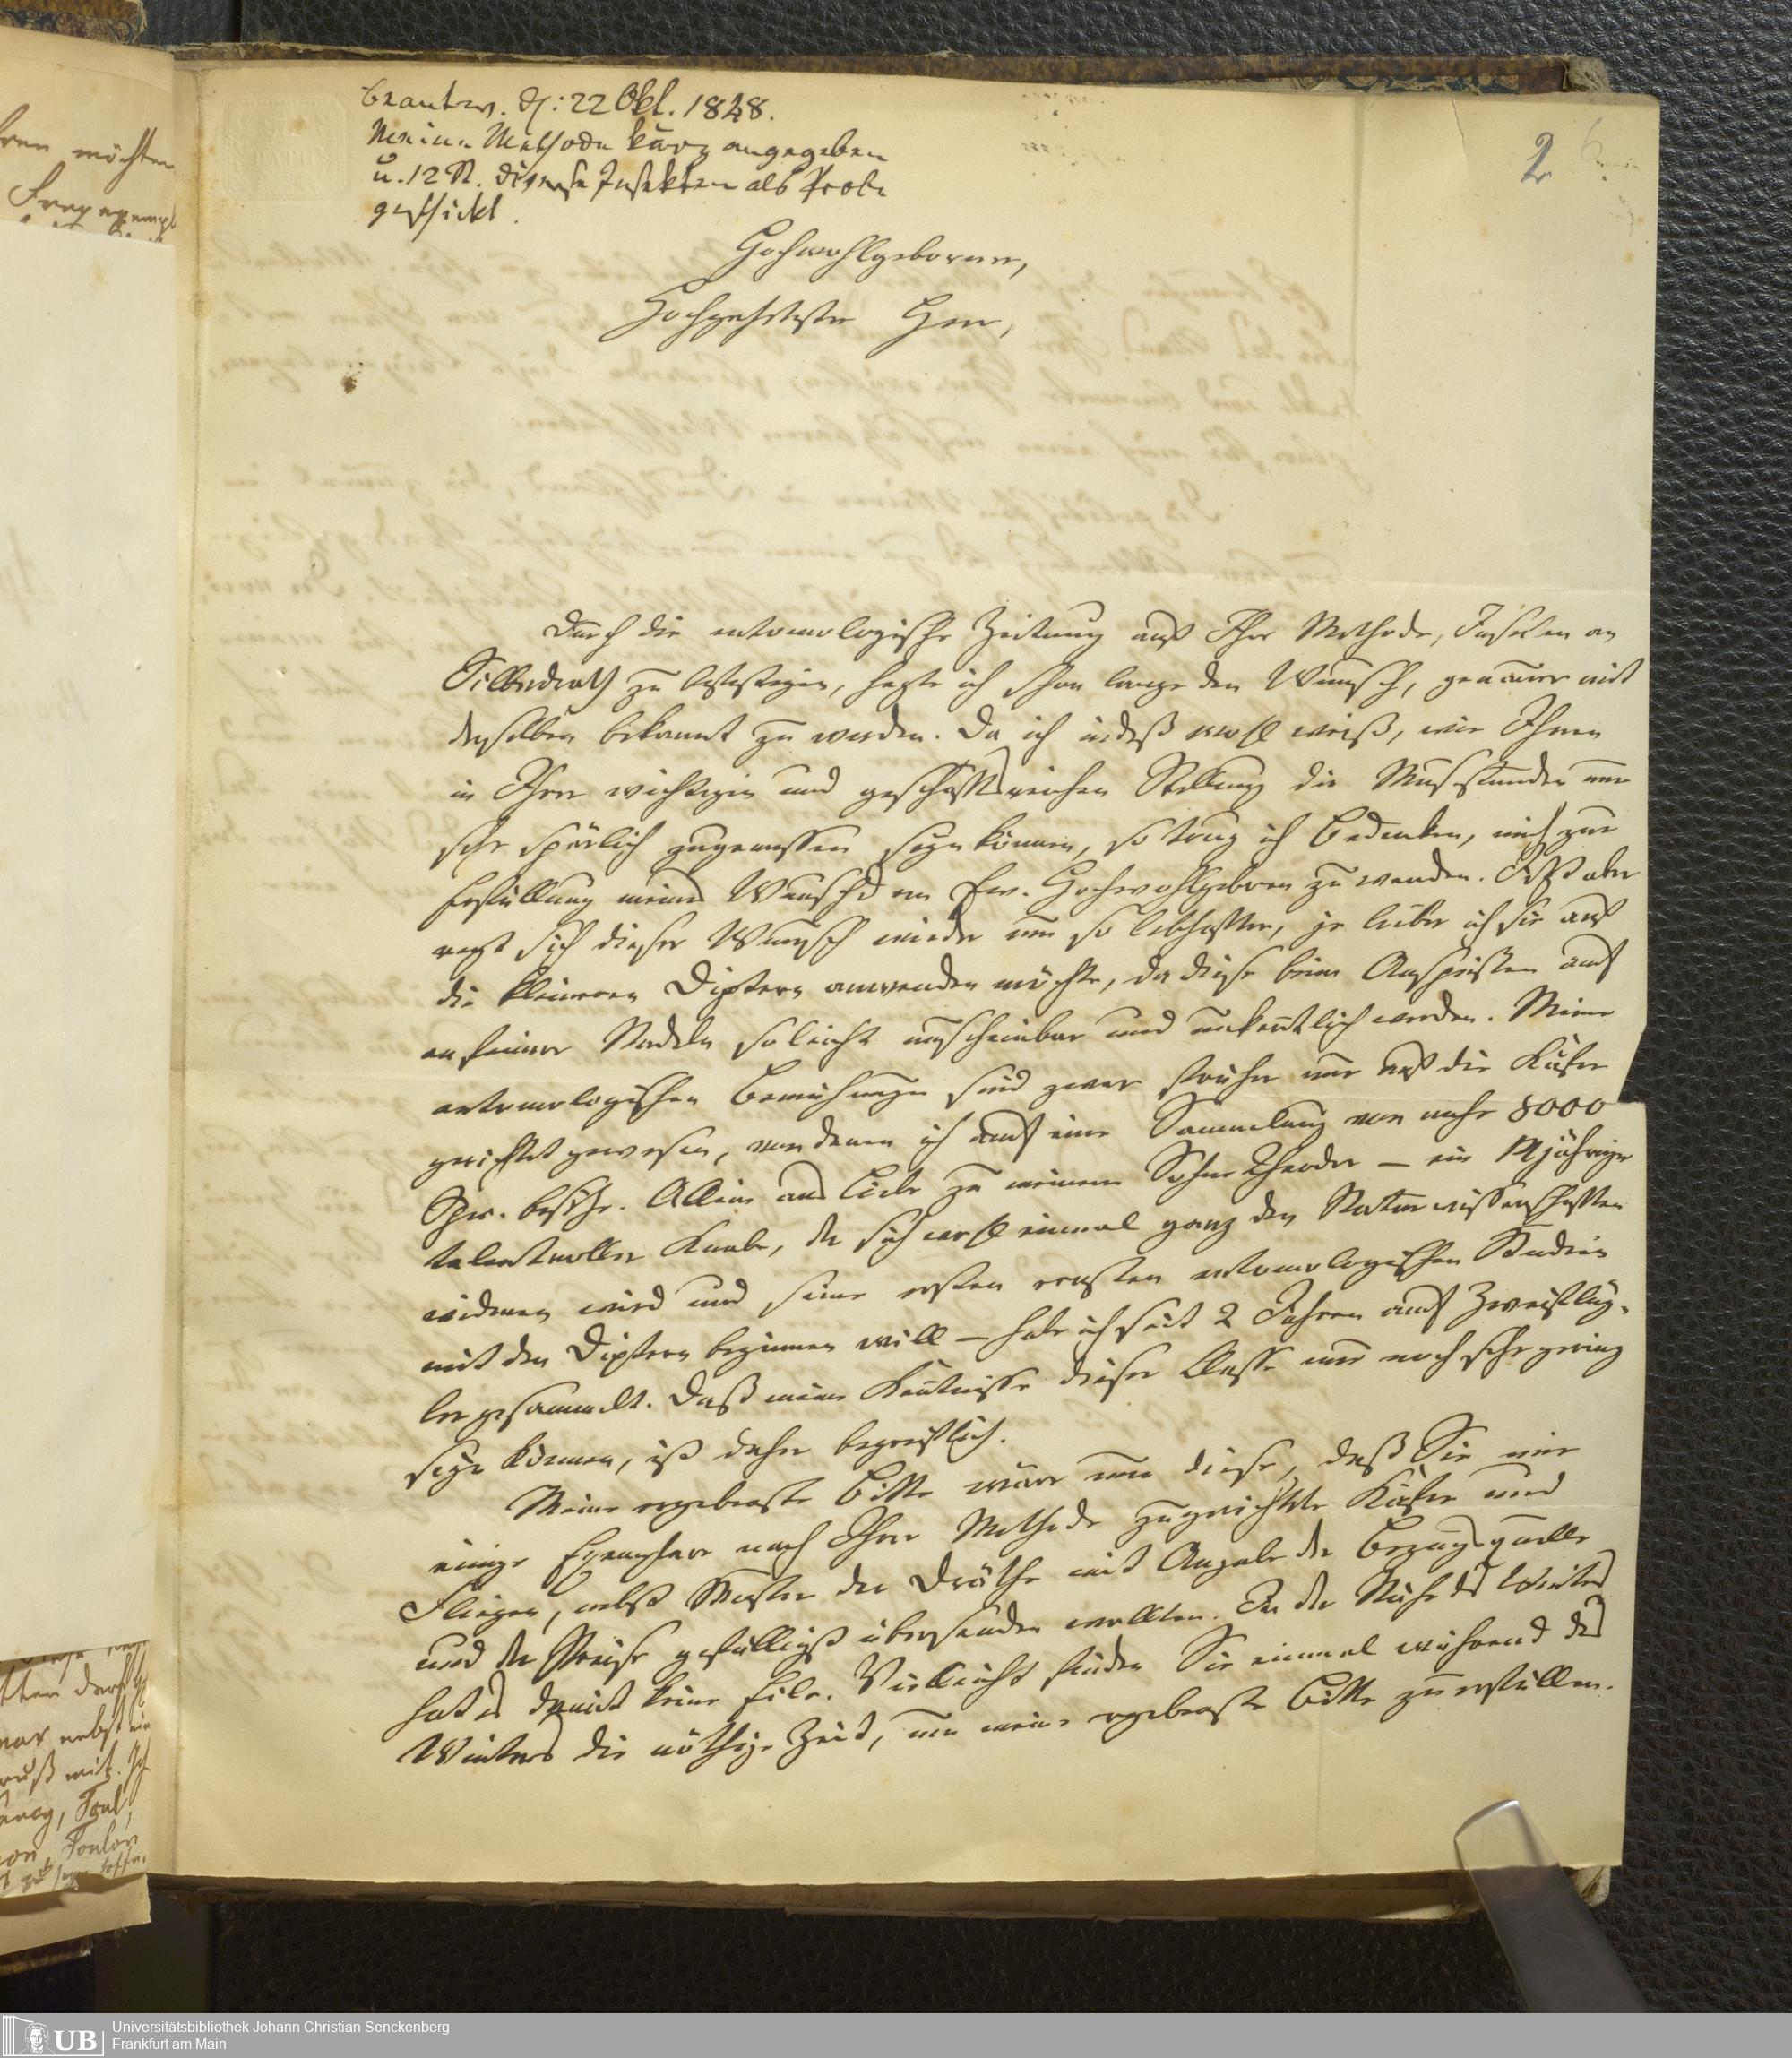 beantw. d: 22 Okt. 1848.
Meine Methode kurz angegeben
u. 12 St. diverse Insekten als Probe
geschickt.
2
Hochwohlgeborner,
Hochgeehrtester Herr,
Durch die entomologische Zeitung auf Ihre Methode, Insekten an
Silberdrath zu befestigen, hegte ich schon lange den Wunsch, genauer mit
derselben bekannt zu werden. Da ich indeß wohl weiß, wie Ihnen
in Ihrer wichtigen und geschäftsreichen Stellung die Mußestunden nur
sehr spärlich zugemessen seyn können, so trug ich Bedenken, mich zur
Erfüllung meines Wunsches an Ew. Hochwohlgeboren zu wenden. Jetzt aber
regt sich dieser Wunsch wieder um so lebhafter, je lieber ich sie auf
die kleineren Diptern anwenden möchte, da diese beim Anspießen auch
an feiner Nadeln so leicht unscheinbar und unkenntlich werden. Meine
entomologischen Bemühungen sind zwar früher nur auf die Käfer
gerichtet gewesen, von denen ich auch eine Sammlung von mehr 8000
Spec. besitze. Allein aus Liebe zu meinem Sohne Theodor – ein 14jähriger
talentvoller Knabe, der sich wohl einmal ganz den Naturwissenschaften
widmen wird und seine ersten ernsten entomologischen Studien
mit den Diptern beginnen will – habe ich seit 2 Jahren auch Zweiflüg-
ler gesammelt. Daß meine Kenntnisse dieser Classe nur noch sehr gering
seyn können, ist daher begreiflich.
Meine ergebenste Bitte wäre nun diese, daß Sie mir
einige Exemplare nach Ihrer Methode zugerichtete Käfer und
Fliegen, nebst Muster der Dräthe mit Angabe der Bezugsquelle
und der Preise gefälligst übersenden wollten. In der Nähe des Winters
hat es damit keine Eile. Vielleicht finden Sie einmal während des
Winters die nöthige Zeit, um meine ergebenste Bitte zu erfüllen.
ren möchten
Freyexempl
tten darf
mar nebst ein
ruß mit. Ich
ancy, Toul,
on Toulon
Universitätsbibliothek Johann Christian Senckenberg
UB
Frankfurt am Main